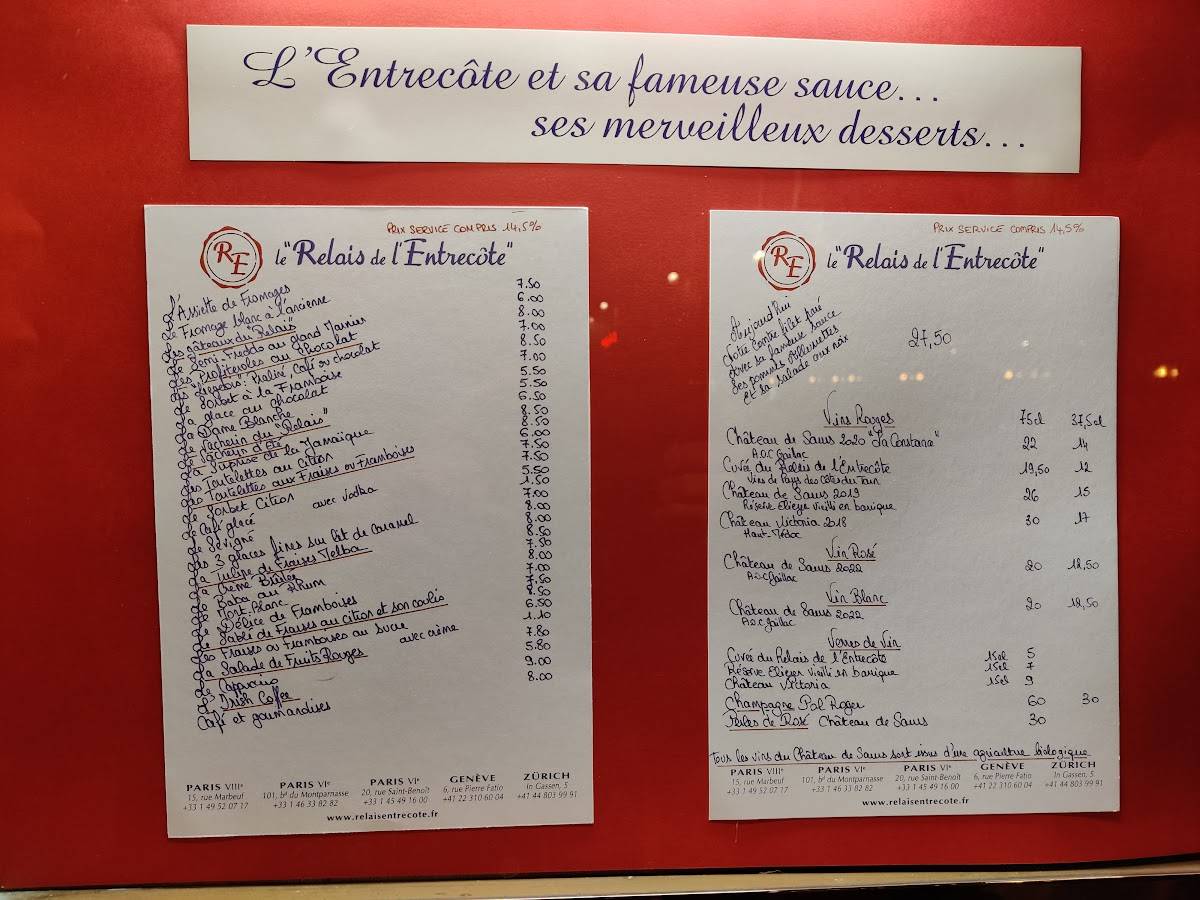 L'Entrecôte et sa fameuse sauce...
ses merveilleux desserts...
PRIX SERVICE COMPRIS 14,5%
RE le "Relais de l'Entrecôte"
L'Assiette de Fromages 7.50
Le Fromage blanc à l'ancienne 6.00
Les gâteaux du "Relais" 8.00
Le Semi-Freddo au Grand Marnier 7.00
Les Profiteroles au Chocolat 8.50
Les Liégeois: Praliné, Café ou chocolat 7.00
Le Sorbet à la Framboise 5.50
La glace au chocolat 5.50
La Dame Blanche 6.50
Le Vacherin du "Relais" 8.50
Le Vacherin d'Eté 8.50
La Surprise de la Jamaïque 6.00
Les Tartelettes au Citron 7.50
Les Tartelettes aux Fraises ou Framboises 7.50
Le Sorbet Citron 5.50
avec vodka 1.50
Le Café glacé 7.00
Le Sévigné 8.00
Les 3 glaces fines sur lit de caramel 8.00
La Tulipe de Fraises Melba 8.50
La Crème Brûlée 7.50
Le Baba au Rhum 8.00
Le Mont-Blanc 7.00
Le Délice de Framboises 7.50
Le Sablé de Fraises au citron et son coulis 8.50
Les Fraises ou Framboises au sucre 6.50
avec crème 1.10
La Salade de Fruits Rouges 7.80
Le Cappuccino 5.80
L'Irish Coffee 9.00
Café et gourmandises 8.00
PARIS VIIIe PARIS VIe PARIS VIe GENÈVE ZÜRICH
15, rue Marbeuf 101, bd du Montparnasse 20, rue Saint-Benoît 6, rue Pierre Fatio In Gassen, 5
+33 1 49 52 07 17 +33 1 46 33 82 82 +33 1 45 49 16 00 +41 22 310 60 04 +41 44 803 99 91
www.relaisentrecote.fr
PRIX SERVICE COMPRIS 14,5%
RE le "Relais de l'Entrecôte"
Aujourd'hui
Notre Contre filet paré
Avec sa fameuse sauce
Ses pommes Allumettes
Et sa salade aux noix
27,50
Vins Rouges 75cl 37,5cl
Château de Saurs 2020 "La Constance" 22 14
A.O.C Gaillac
Cuvée du Relais de l'Entrecôte 19,50 12
Vins de Pays des Côtes du Tarn
Château de Saurs 2019 26 15
Réserve Elieys vieilli en barrique
Château Victoria 2018 30 17
Haut-Médoc
Vin Rosé
Château de Saurs 2022 20 12,50
A.O.C Gaillac
Vin Blanc
Château de Saurs 2022 20 12,50
A.O.C Gaillac
Verres de Vin
Cuvée du Relais de l'Entrecôte 15cl 5
Réserve Elieys vieilli en barrique 15cl 7
Château Victoria 15cl 9
Champagne Pol Roger 60 30
Perles de Rosé Château de Saurs 30
Tous les vins du Château de Saurs sont issus d'une agriculture biologique
PARIS VIIIe PARIS VIe PARIS VIe GENÈVE ZÜRICH
15, rue Marbeuf 101, bd du Montparnasse 20, rue Saint-Benoît 6, rue Pierre Fatio In Gassen, 5
+33 1 49 52 07 17 +33 1 46 33 82 82 +33 1 45 49 16 00 +41 22 310 60 04 +41 44 803 99 91
www.relaisentrecote.fr